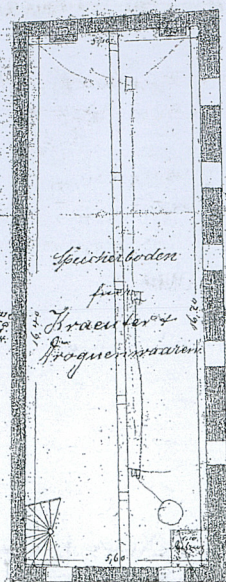 5,60
Speicherboden
fuer
Kraeuter &
Droguenwaaren.
16,20
5,60